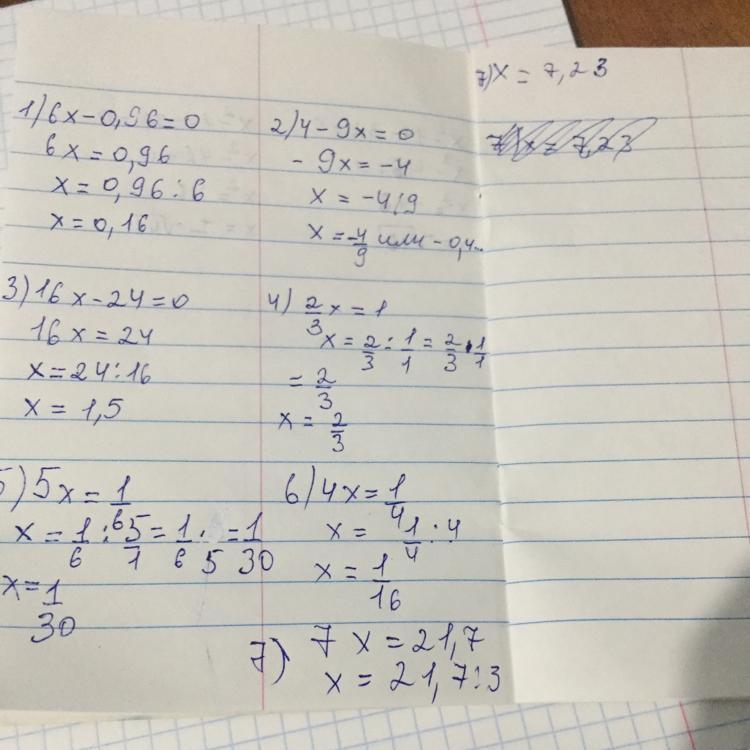 1) 6x-0,96=0
6x=0,96
x=0,96:6
x=0,16
2) 4-9x=0
-9x=-4
x=-4/9
x=-4/9 или -0,4...
3) 16x-24=0
16x=24
x=24:16
x=1,5
4) 2/3 x=1
x=2/3:1/1=2/3·1/1
=2/3
x=2/3
5) 5x=1/6
x=1/6:5/1=1/6· /5=1/30
x=1/30
6) 4x=1/4
x=1/4:4
x=1/16
7) 7x=21,7
x=21,7:3
7) x=7,23
7) x=7,23